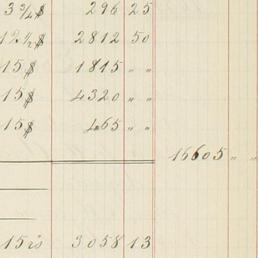 3 3/4 $ 296 25
12 1/2 $ 2812 50
15 $ 1815 " "
15 $ 4320 " "
15 $ 465 " "
16605 " "
15 is 3058 13